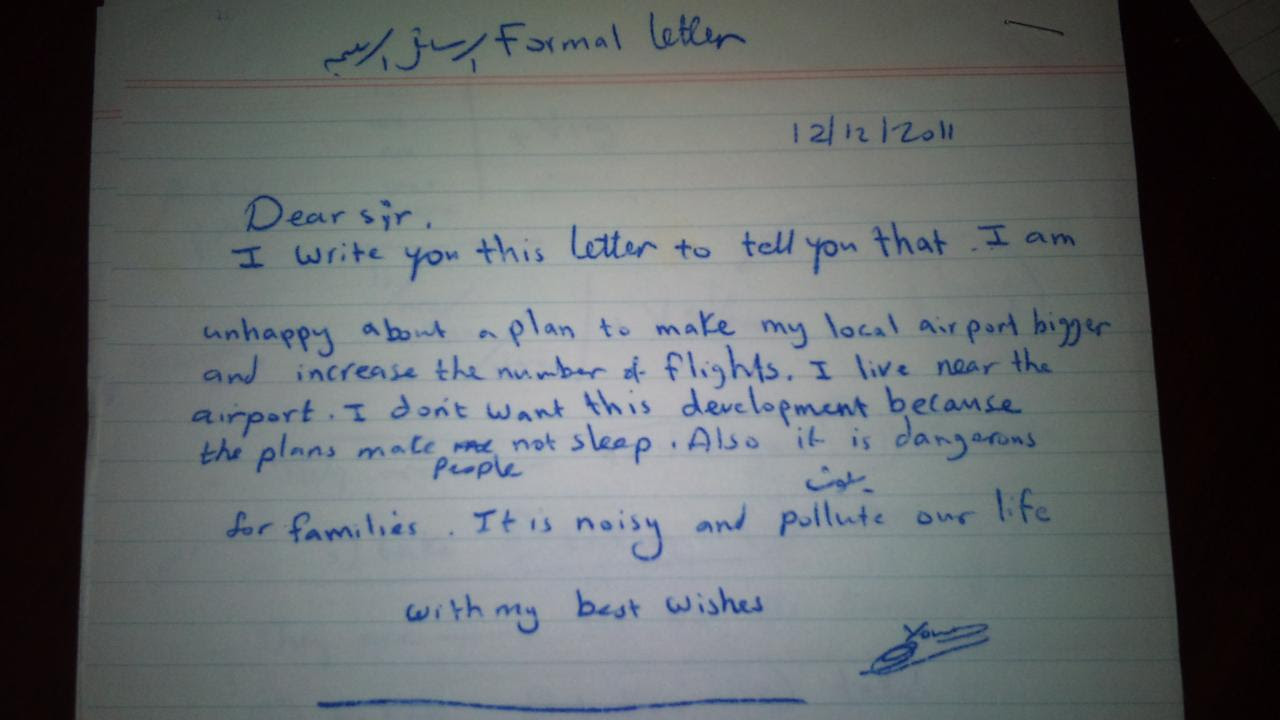 الرسائل الرسمية Formal letter
12/12/2011
Dear sir.
I write you this letter to tell you that . I am
unhappy about a plan to make my local airport bigger
and increase the number of flights. I live near the
airport. I don't want this development because
the plans make not sleep. Also it is dangerous
people
يلوث
for families. It is noisy and pollute our life
with my best wishes